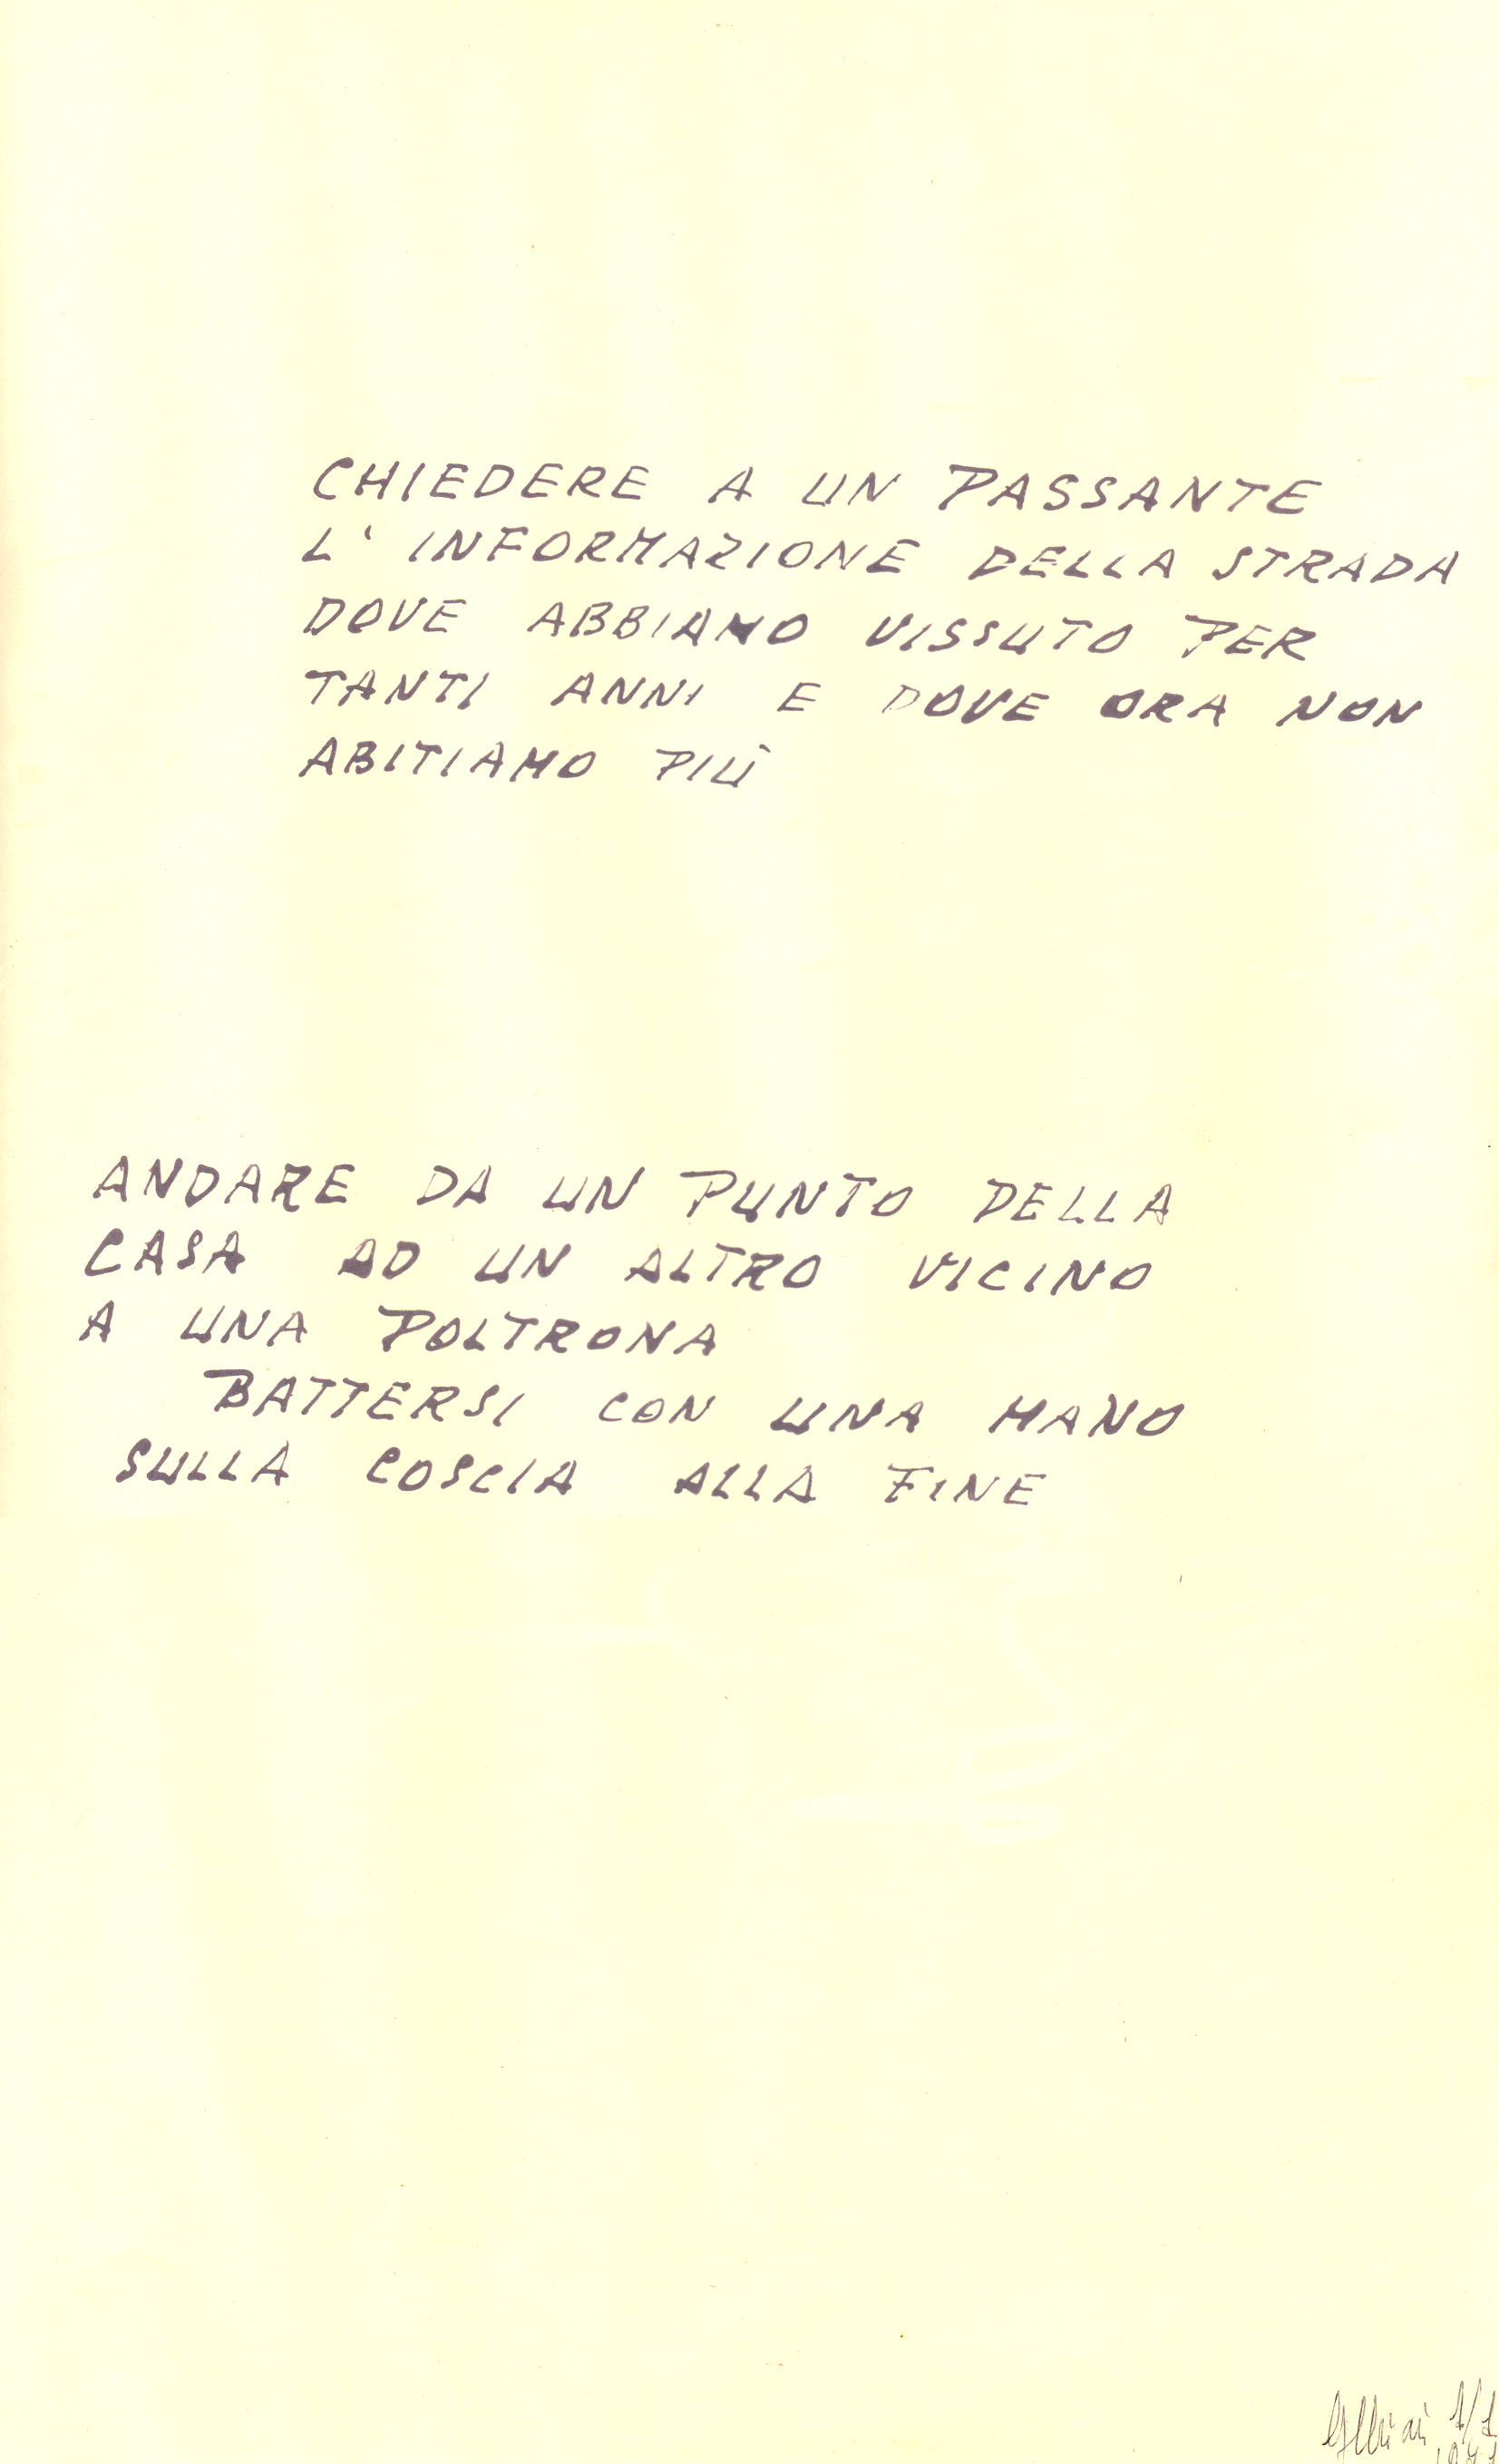 CHIEDERE A UN PASSANTE
L' INFORMAZIONE DELLA STRADA
DOVE ABBIAMO VISSUTO PER
TANTI ANNI E DOVE ORA NON
ABITIAMO PIÙ
ANDARE DA UN PUNTO DELLA
CASA AD UN ALTRO VICINO
A UNA POLTRONA
BATTERSI CON UNA MANO
SULLA COSCIA ALLA FINE
1/1